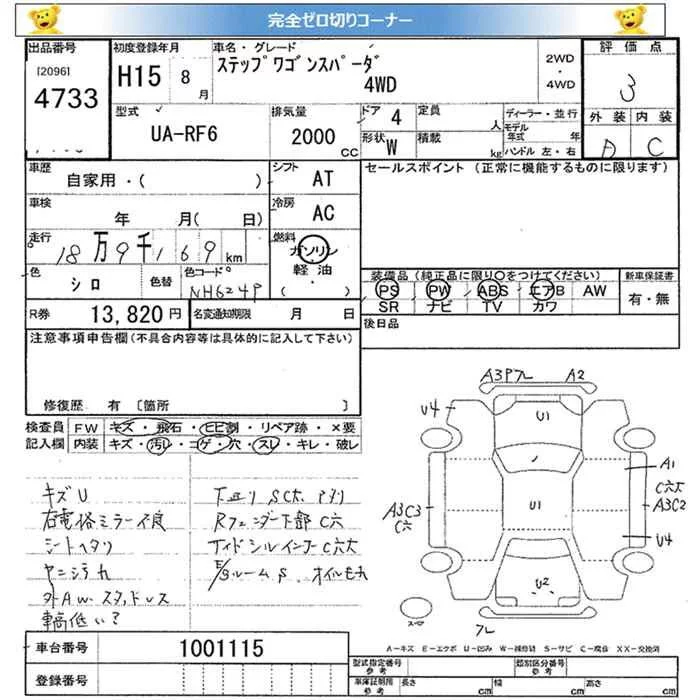 完全ゼロ切りコーナー
出品番号 初度登録年月 車名・グレード 評価点
[2096] H15 8月 ステップワゴンスパーダ 2WD・4WD 3
4733 4WD
型式 排気量 ドア 4 定員 人 ディーラー・並行 外装 内装
UA-RF6 2000 CC 形状 W 積載 kg モデル年式 年 C
ハンドル 左・右
車歴 シフト セールスポイント(正常に機能するものに限ります)
自家用・( ) AT
車検 冷房
年 月( 日) AC
走行 燃料
18万9千169km ガソリン
軽油
( )
色 色替 色コード 装備品(純正品に限り〇をつけてください) 新車保証書
シロ NH624P PS PW ABS エアB AW 有・無
SR ナビ TV カワ
R券 13,820円 名変通知期限 月 日 後日品
注意事項申告欄(不具合内容等は具体的に記入して下さい)
修復歴 有 〔箇所 〕
検査員 FW キズ・飛石・ヒビ割・リペア跡・×要
記入欄 内装 キズ・汚レ・コゲ・穴・スレ・キレ・破レ
キズU
右電格ミラー不良
シートヘタリ
ヤニシラ九
外AW.スタッドレス
車高低い?
下廻りSC大 アリ
Rフェンダー下部C穴
TイドシルインナーC穴大
E/gルームS. オイルモレ
A3Pフレ A2
U4 U1
A1
C穴大
A3C3 U1 A3C2
C穴
U4
U2
フレ
A-キズ E-エクボ U-凹み W-補修跡 S-サビ C-腐蝕 XX-交換済
車台番号 1001115
登録番号
型式指定番号 参考 類別区分番号 参考
車庫証明用 参考 長さ cm 幅 cm 高さ cm